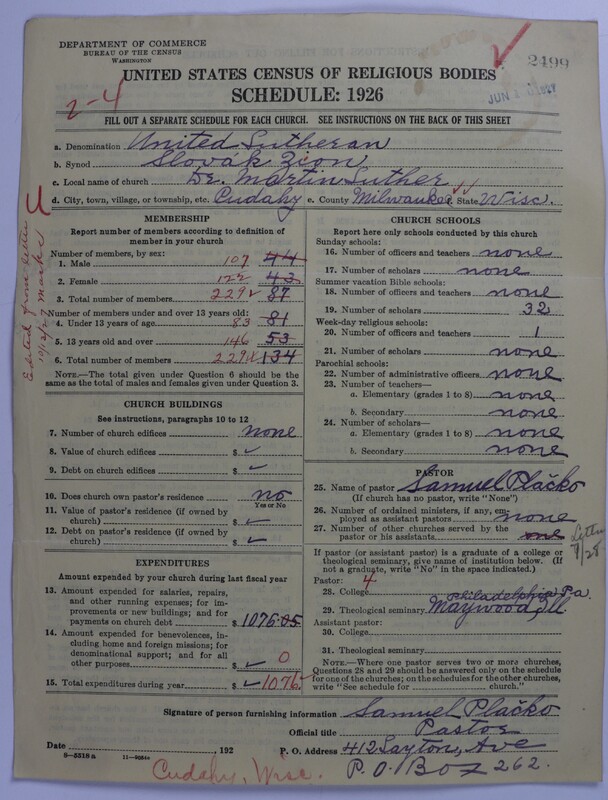 DEPARTMENT OF COMMERCE
BUREAU OF THE CENSUS
WASHINGTON
2499
UNITED STATES CENSUS OF RELIGIOUS BODIES
SCHEDULE: 1926
2-4
JUN
FILL OUT A SEPARATE SCHEDULE FOR EACH CHURCH. SEE INSTRUCTIONS ON THE BACK OF THIS SHEET
a. Denomination United Lutheran
b. Synod Slovak Zion
c. Local name of church Dr. Martin Luther
d. City, town, village, or township, etc. Cudahy e. County Milwaukee State Wisc.
Edited from letter 10/2/27
MEMBERSHIP
Report number of members according to definition of
member in your church
Number of members, by sex:
1. Male 107 44
2. Female 122 43
3. Total number of members 229 87
Number of members under and over 13 years old:
4. Under 13 years of age 83 81
5. 13 years old and over 146 53
6. Total number of members 229 134
NOTE.—The total given under Question 6 should be
the same as the total of males and females given under Question 3.
CHURCH BUILDINGS
See instructions, paragraphs 10 to 12
7. Number of church edifices none
8. Value of church edifices $ ✓
9. Debt on church edifices $ ✓
10. Does church own pastor's residence no
Yes or No
11. Value of pastor's residence (if owned by
church) $ ✓
12. Debt on pastor's residence (if owned by
church) $ ✓
EXPENDITURES
Amount expended by your church during last fiscal year
13. Amount expended for salaries, repairs,
and other running expenses; for im-
provements or new buildings; and for
payments on church debt $ 1076.05
14. Amount expended for benevolences, in-
cluding home and foreign missions; for
denominational support; and for all
other purposes $ ✓ 0
15. Total expenditures during year $ ✓ 1076
CHURCH SCHOOLS
Report here only schools conducted by this church
Sunday schools:
16. Number of officers and teachers none
17. Number of scholars none
Summer vacation Bible schools:
18. Number of officers and teachers none
19. Number of scholars 32
Week-day religious schools:
20. Number of officers and teachers 1
21. Number of scholars none
Parochial schools:
22. Number of administrative officers none
23. Number of teachers—
a. Elementary (grades 1 to 8) none
b. Secondary none
24. Number of scholars—
a. Elementary (grades 1 to 8) none
b. Secondary none
PASTOR
25. Name of pastor Samuel Plačko
(If church has no pastor, write "None")
26. Number of ordained ministers, if any, em-
ployed as assistant pastors none
27. Number of other churches served by the
pastor or his assistants one
Letter
If pastor (or assistant pastor) is a graduate of a college or
theological seminary, give name of institution below. (If
not a graduate, write "No" in the space indicated.)
Pastor: 4
28. College Philadelphia Pa.
29. Theological seminary Maywood, Ill
Assistant pastor:
30. College
31. Theological seminary
NOTE.—Where one pastor serves two or more churches,
Questions 28 and 29 should be answered only on the schedule
for one of the churches; on the schedules for the other churches,
write "See schedule for church."
Signature of person furnishing information Samuel Plačko
Official title Pastor
Date , 192 P. O. Address 412 Layton, Ave
8—5518 a 11—9054
Cudahy, Wisc. P. O. Box 262.